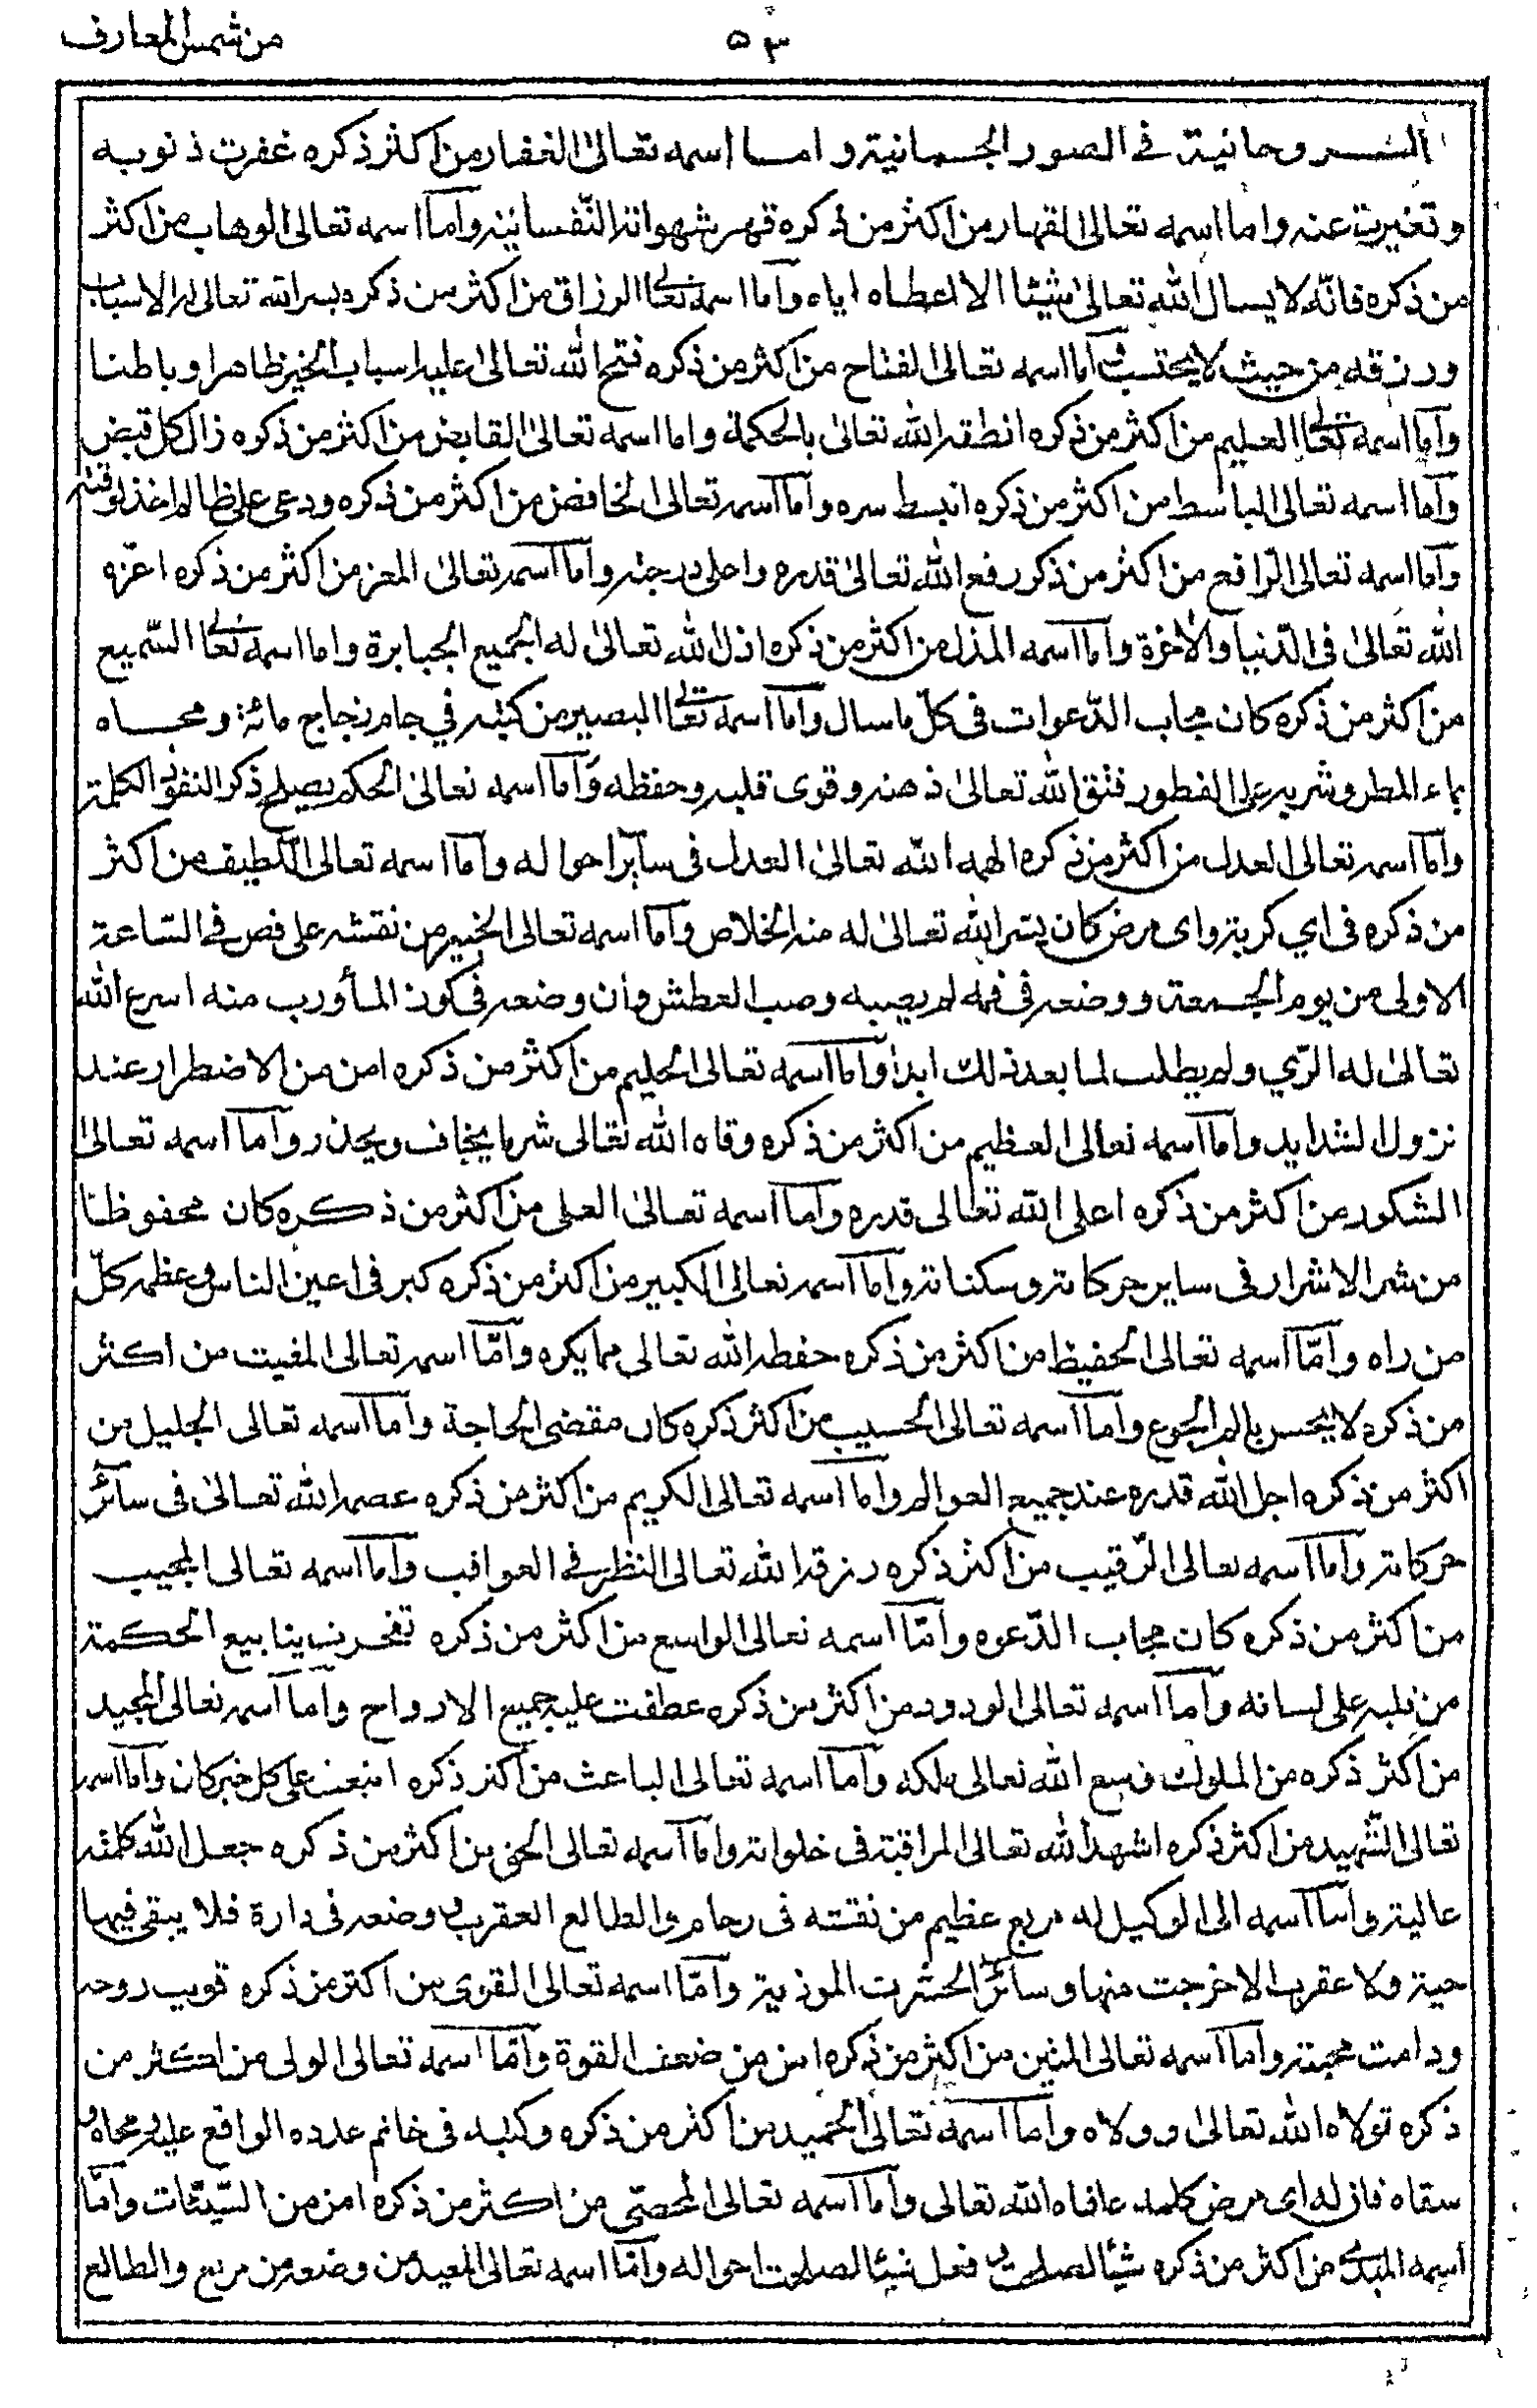 من شمس المعارف
٥٣
الروحانية في الصور الجسمانية واما اسمه تعالى الغفار من اكثر ذكره غفرت ذنوبه
وتغيرت عنه واما اسمه تعالى القهار من اكثر من ذكره قهر شهواته النفسانية وأما اسمه تعالى الوهاب من اكثر
من ذكره فانّه لا يسال الله تعالى شيئا الا اعطاه اياه وأما اسمه تعالى الرزاق من اكثر من ذكره يسر الله تعالى له الاسباب
ورزقه من حيث لا يحتسب وأما اسمه تعالى الفتاح من اكثر من ذكره فتح الله تعالى عليه اسباب الخير ظاهرا وباطنا
وأما اسمه تعالى العليم من اكثر من ذكره انطقه الله تعالى بالحكمة واما اسمه تعالى القابض من اكثر من ذكره زال كل قبض
وأما اسمه تعالى الباسط من اكثر من ذكره انبسط سره وأما اسمه تعالى الخافض من اكثر من ذكره ودعى على ظالم اخذ لوقته
وأما اسمه تعالى الرّافع من اكثر من ذكر رفع الله تعالى قدره واعلى درجته وأما اسمه تعالى المعز من اكثر من ذكره اعّزه
الله تعالى فى الدّنيا والأخرة وأما اسمه المذل من اكثر من ذكره اذل الله تعالى له الجميع الجبابرة واما اسمه تعالى السّميع
من اكثر من ذكره كان مجاب الدّعوات فى كلّ ما سال وأما اسمه تعالى البصير من كتبه في جام زجاج مائة ومحاه
بماء المطر وشربه على الفطور فتق الله تعالى ذهنه وقوى قلبه وحفظه وأما اسمه تعالى الحكم يصلح ذكر النفوذ الكلمة
وأما اسمه تعالى العدل من اكثر من ذكره الهمه الله تعالى العدل فى سآير احواله وأما اسمه تعالى اللّطيف من اكثر
من ذكره فى اي كربة واى مرض كان يسّر الله تعالى له منه الخلاص وأما اسمه تعالى الخبير من نقشه على فص في السّاعة
الاولى من يوم الجمعة ووضعه فى فمه لم يصبه وصب العطش وأن وضعه فى كوز المأ ورب منه اسرع الله
تعالى له الرّي ولم يطلب لما بعد ذلك ابدا وأما اسمه تعالى الحليم من اكثر من ذكره امن من الاضطرار عند
نزول الشدايد وأما اسمه تعالى العظيم من اكثر من ذكره وقاه الله تعالى شر ما يخاف ويحذر وأما اسمه تعالى
الشكور من اكثر من ذكره اعلى الله تعالى قدره وأما اسمه تعالى العلى من اكثر من ذكره كان محفوظا
من شر الاشرار فى ساير حركاته وسكناته وأما اسمه تعالى الكبير من اكثر من ذكره كبر فى اعين الناس وعظمه كلّ
من راه وأمّا اسمه تعالى الحفيظ من اكثر من ذكره حفطه الله تعالى مما يكره وأمّا اسمه تعالى المقيت من اكثر
من ذكره لا يحس بالم الجوع وأما اسمه تعالى الحسيب من اكثر ذكره كان مقضى الحاجة وأما اسمه تعالى الجليل من
اكثر من ذكره اجل الله قدره عند جميع العوالم وأما اسمه تعالى الكريم من اكثر من ذكره عصمه الله تعالى فى سآئر
حركاته وأما اسمه تعالى الرّقيب من اكثر ذكره رزقه الله تعالى النظر في العواقب وأما اسمه تعالى المجيب
من اكثر من ذكره كان مجاب الدّعوه وأمّا اسمه تعالى الواسع من اكثر من ذكره تفجرت ينابيع الحكمة
من قلبه على لسانه وأما اسمه تعالى الودود من اكثر من ذكره عطفت عليه جميع الارواح وأما اسمه تعالى المجيد
من اكثر ذكره من الملوك وسع الله تعالى ملكه وأما اسمه تعالى الباعث من اكثر ذكره انبعث على كل خير كان وأما اسمه
تعالى الشّهيد من اكثر ذكره اشهد الله تعالى المراقبة فى خلواته وأما اسمه تعالى الحق من اكثر من ذكره جعل الله كلمته
عالية وأما اسمه الى الوكيل له مربع عظيم من نقشه فى رخام والطالع العقرب ووضعه فى دارة فلا يبقى فيها
حية ولا عقرب الا خرجت منها وسآئر الحشرت الموذية وأمّا اسمه تعالى القوى من اكثر من ذكره قويب روحه
ودامت محبته وأما اسمه تعالى المتين من اكثر من ذكره امن من ضعف القوة وأمّا اسمه تعالى الولى من اكثر من
ذكره تولاه الله تعالى وولاه وأما اسمه تعالى الحميد من اكثر من ذكره وكتبه فى خاتم عدده الواقع عليه ومحاه و
سقاه فاز له اى مرض كلمه عافاه الله تعالى وأما اسمه تعالى المحصى من اكثر من ذكره امن من السّيئات وأمّا
اسمه المبدئ من اكثر من ذكره شيئا فعل شيئا احواله وأمّا اسمه تعالى المعيد من وضعه من مربع والطالع